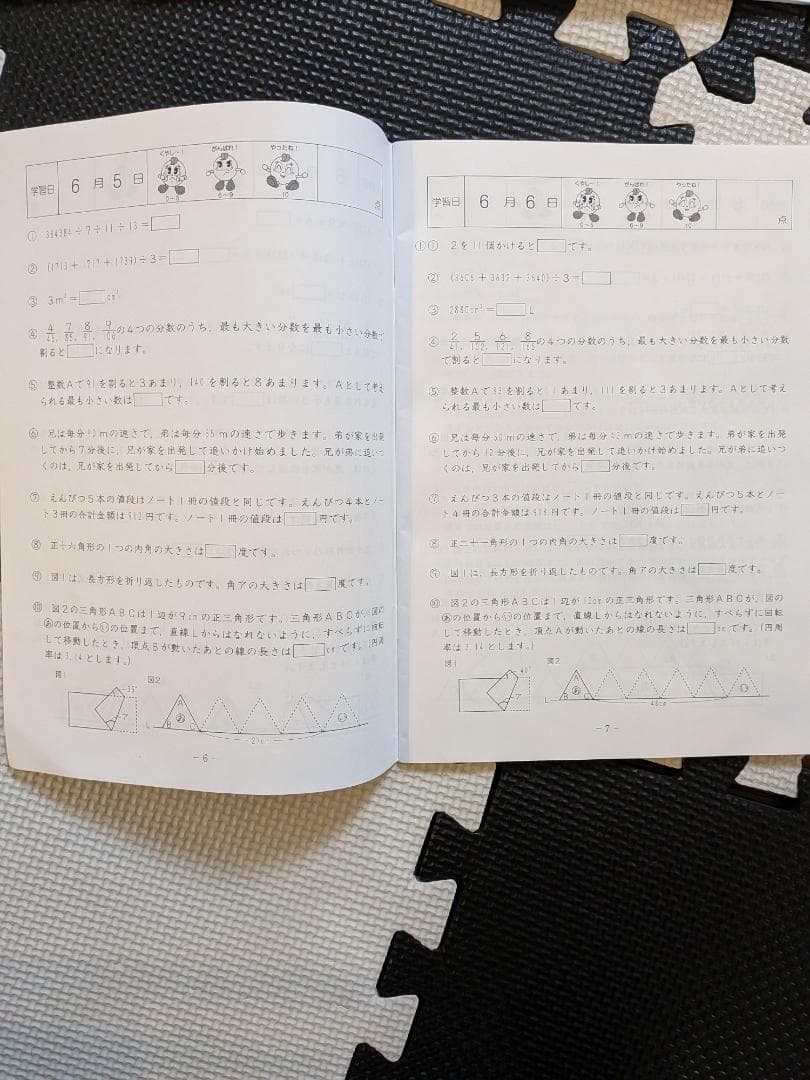 学習日
6月5日
くやし〜!
0〜5
がんばれ!
6〜9
やったね!
10
点
① 384384÷7÷11÷13=
② (1713+1717+1739)÷3=
③ 3m²= cm²
④ の4つの分数のうち、最も大きい分数を最も小さい分数で
割ると になります。
⑤ 整数Aで91を割ると3あまり、140を割ると8あまります。Aとして考え
られる最も小さい数は です。
⑥ 兄は毎分 mの速さで、弟は毎分 mの速さで歩きます。弟が家を出発
してから7分後に、兄が家を出発して追いかけ始めました。兄が弟に追いつ
くのは、兄が家を出発してから 分後です。
⑦ えんぴつ5本の値段はノート1冊の値段と同じです。えんぴつ4本とノー
ト3冊の合計金額は 円です。ノート1冊の値段は 円です。
⑧ 正十六角形の1つの内角の大きさは 度です。
⑨ 図1は、長方形を折り返したものです。角アの大きさは 度です。
⑩ 図2の三角形ABCは1辺が9cmの正三角形です。三角形ABCが、図の
あの位置からいの位置まで、直線Lからはなれないように、すべらずに回転
して移動したとき、頂点Bが動いたあとの線の長さは cmです。(円周
率は3.14とします。)
図1
ア
図2
A
あ
B
C
い
L
27cm
-6-
学習日
6月6日
くやし〜!
0〜5
がんばれ!
6〜9
やったね!
10
点
① ① 2を11個かけると です。
② (3606+3637+3640)÷3=
③ 2880cm³= L
④ の4つの分数のうち、最も大きい分数を最も小さい分数
で割ると になります。
⑤ 整数Aで を割ると あまり、111を割ると3あまります。Aとして考え
られる最も小さい数は です。
⑥ 兄は毎分 mの速さで、弟は毎分 mの速さで歩きます。弟が家を出発
してから12分後に、兄が家を出発して追いかけ始めました。兄が弟に追いつ
くのは、兄が家を出発してから 分後です。
⑦ えんぴつ3本の値段はノート1冊の値段と同じです。えんぴつ5本とノー
ト4冊の合計金額は 円です。ノート1冊の値段は 円です。
⑧ 正二十一角形の1つの内角の大きさは 度です。
⑨ 図1は、長方形を折り返したものです。角アの大きさは 度です。
⑩ 図2の三角形ABCは1辺が12cmの正三角形です。三角形ABCが、図の
あの位置からいの位置まで、直線Lからはなれないように、すべらずに回転
して移動したとき、頂点Aが動いたあとの線の長さは cmです。(円周
率は3.14とします。)
図1
図2
A
あ
B
C
い
L
48cm
-7-